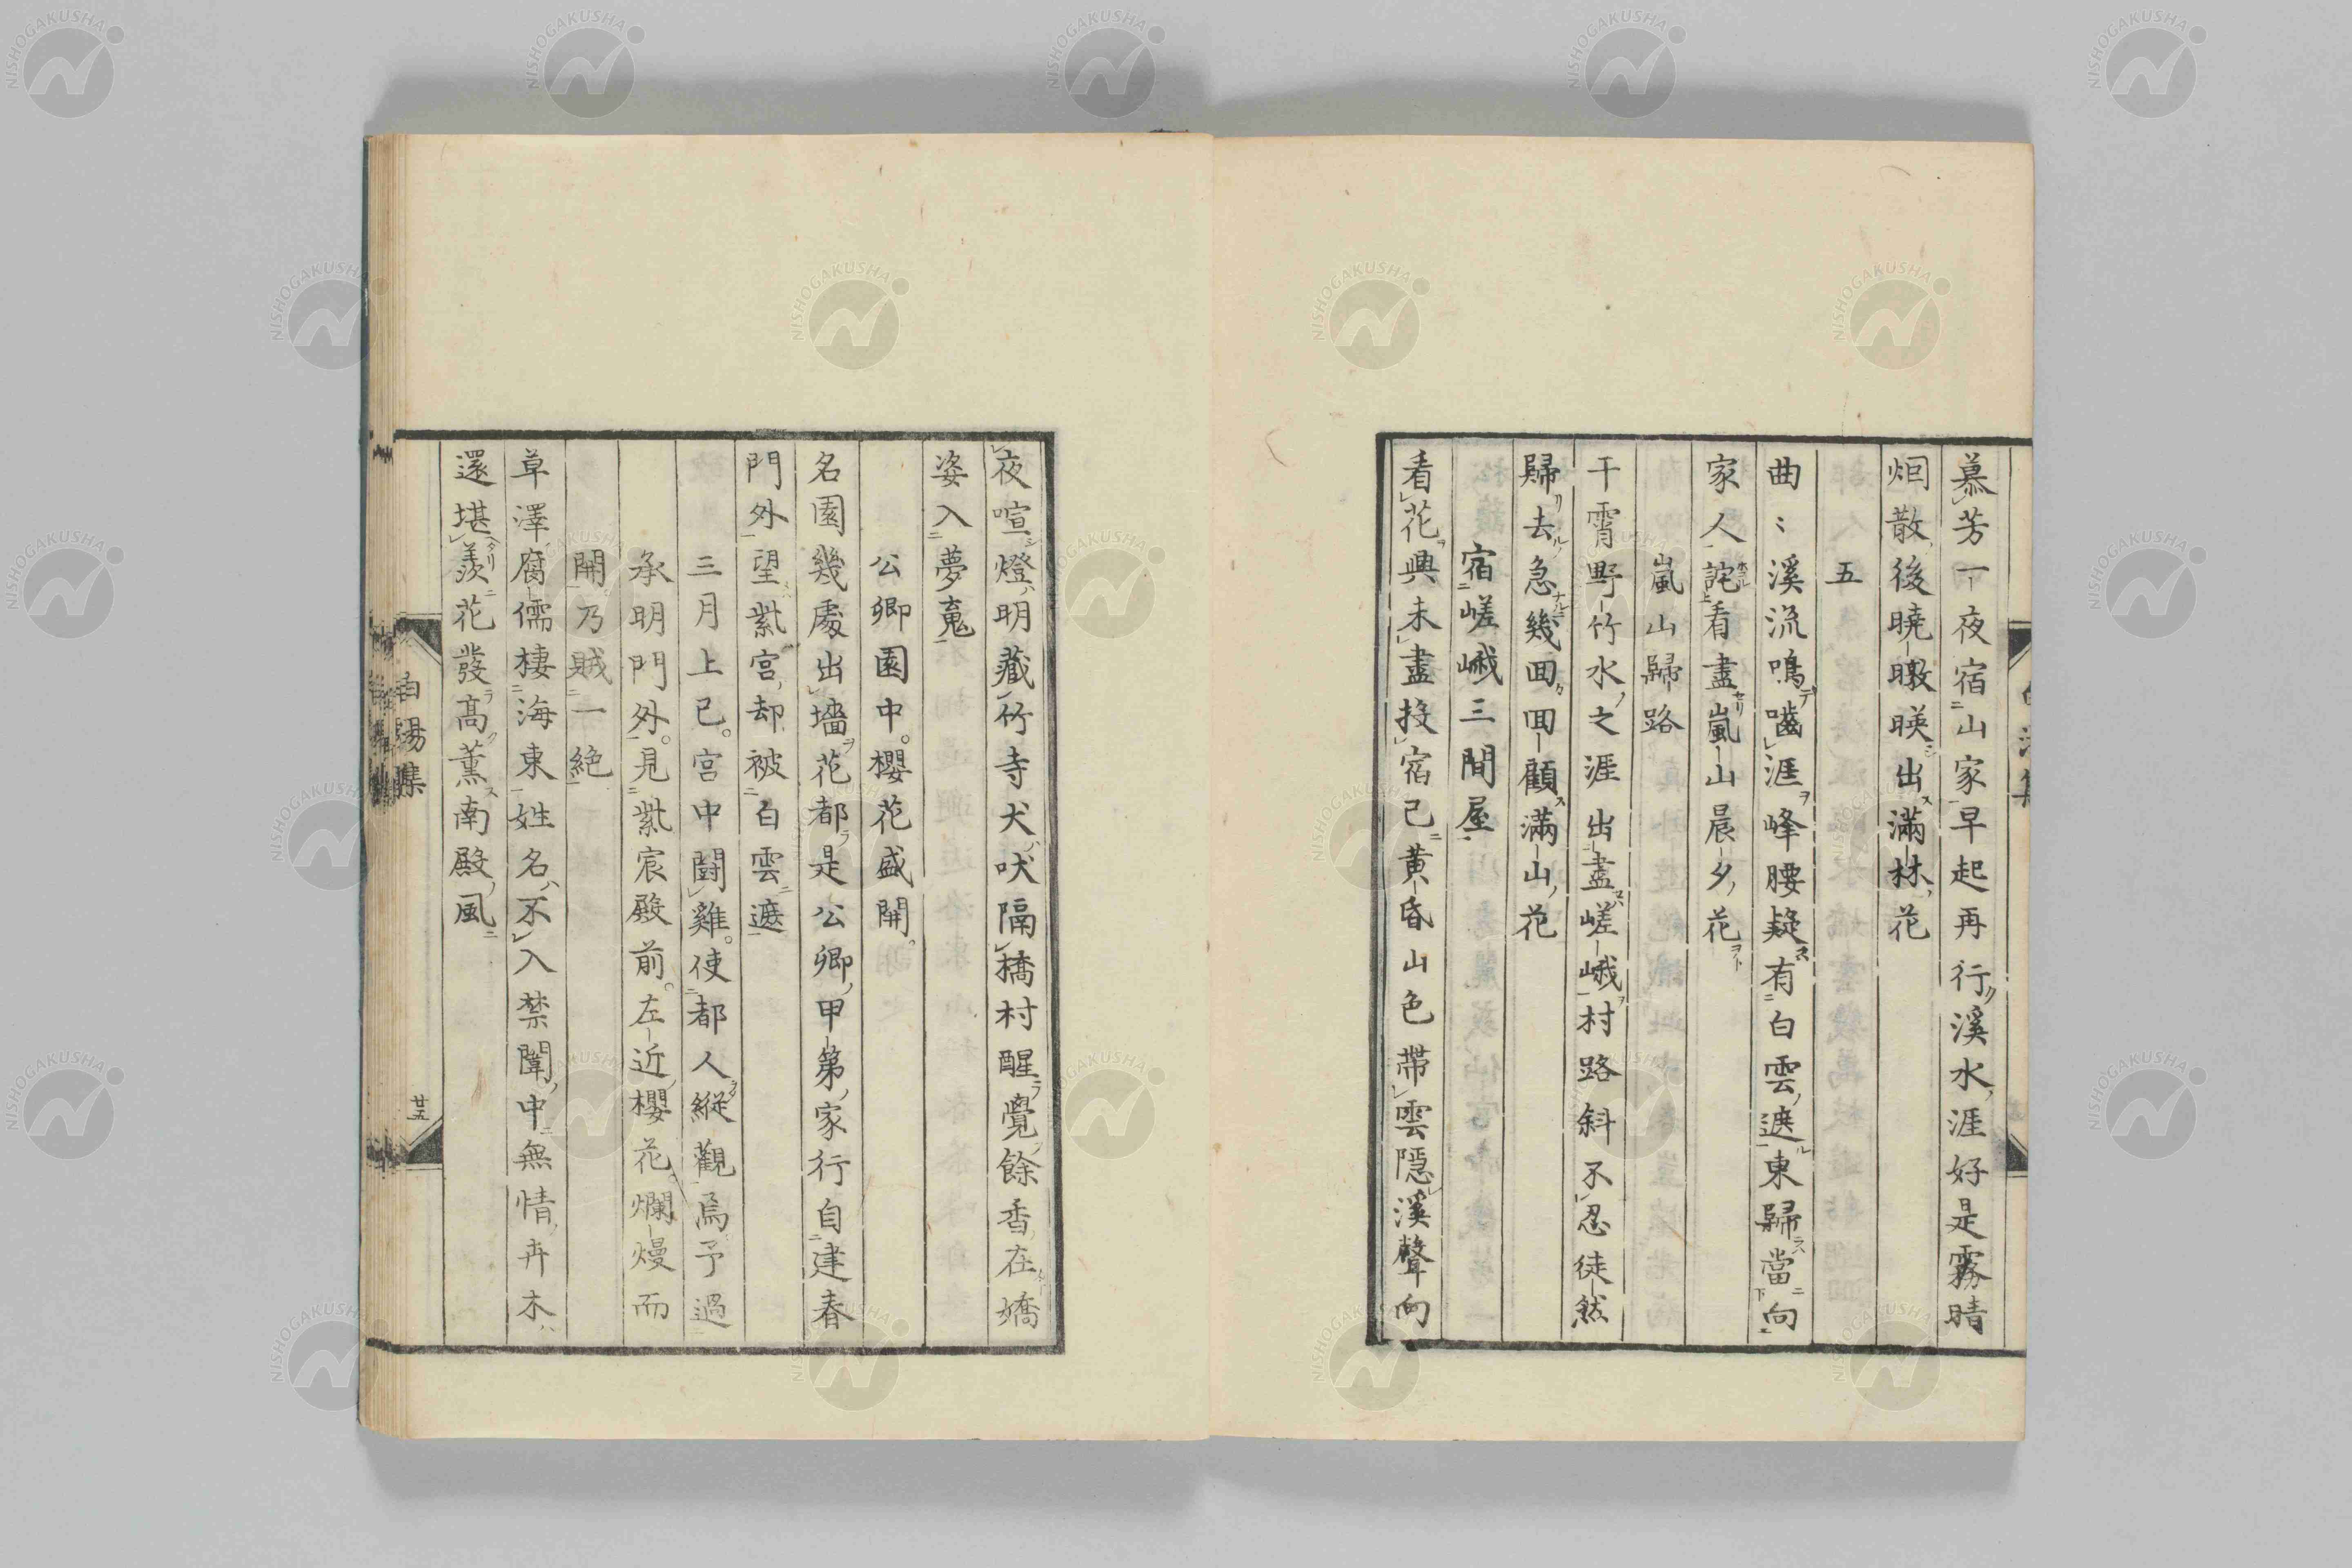 慕芳一夜宿山家早起再行溪水涯好是霧晴
烟散後曉暾暎出滿林花
五
曲〻溪流鳴嚙涯峰腰疑有白雲遮東歸當向
家人詫看盡嵐山晨夕花
嵐山歸路
干霄野竹水之涯出盡嵯峨村路斜不忍徒然
歸去急幾回回顧滿山花
宿嵯峨三間屋
看花興未盡投宿已黃昏山色帶雲隱溪聲向
夜喧燈明藏竹寺犬吠隔橋村醒覺餘香在嬌
姿入夢寬
公卿園中。櫻花盛開。
名園幾處出墻花都是公卿甲第家行自建春
門外望紫宮却被白雲遮
三月上巳。宮中鬪雞。使都人縱觀焉予過
承明門外。見紫宸殿前。左近櫻花。爛熳而
開乃賦一絕
草澤腐儒棲海東姓名不入禁闈中無情卉木
還堪羨花發高薰南殿風
白湯集
廿五
NISHOGAKUSHA